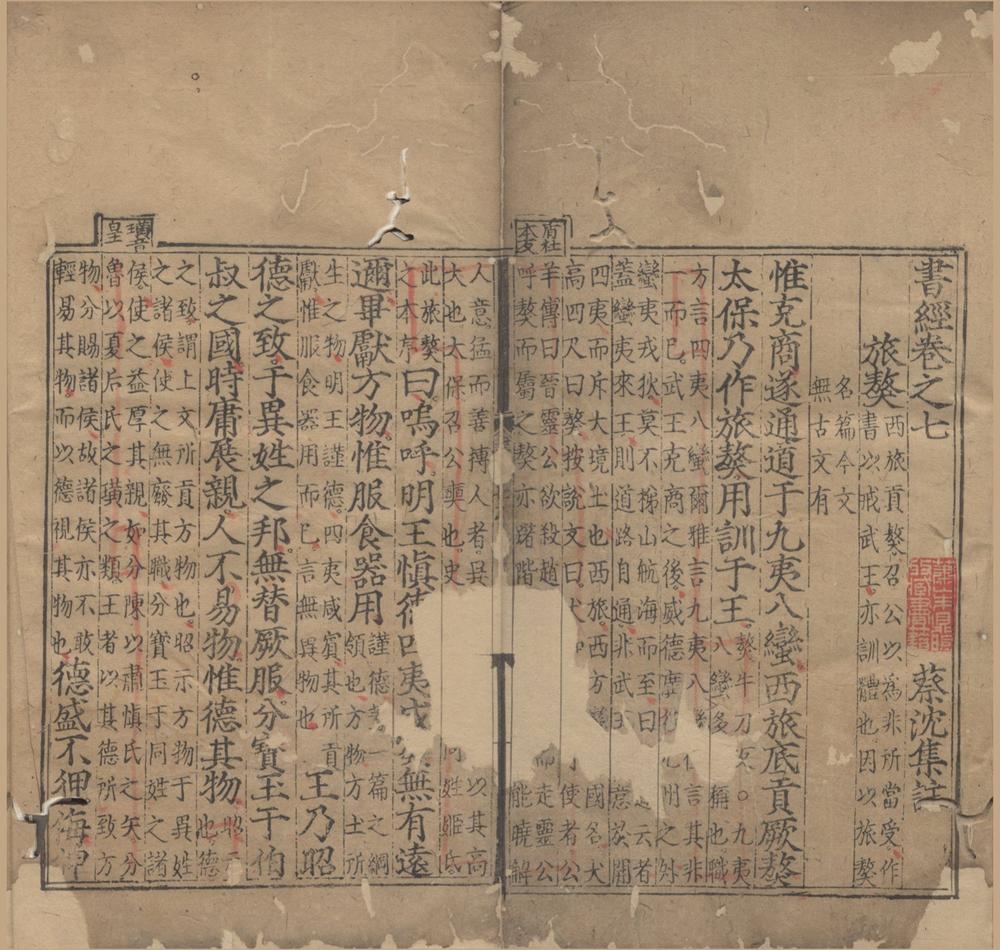 書經卷之七
蔡沈集註
旅獒
西旅貢獒召公以爲非所當受作
書以戒武王亦訓體也因以旅獒
名篇今文
無古文有
惟克商遂通道于九夷八蠻西旅底貢厥獒
太保乃作旅獒用訓于王
獒牛刀反○九夷
八蠻多稱也職
方言四夷八蠻爾雅言九夷八蠻但言其非
一而已武王克商之後威德廣九州之外
蠻夷戎狄莫不梯山航海而至曰通云者
蓋蠻夷來王則道路自通非武王意於開
四夷而斥大境土也西旅西方國名犬
高四尺曰獒按說文曰犬使者公
羊傳曰晉靈公欲殺趙而走靈公
呼獒而屬之獒亦躇階能曉解
人意猛而善搏人者異以其高
大也太保召公奭也史同姓姬氏
此旅獒
之本序
曰嗚呼明王慎德四夷咸無有遠
邇畢獻方物惟服食器用
謹德一篇之綱
領也方物方土所
生之物明王謹德四夷咸賓其所貢
獻惟服食器用而已言無異物也
王乃昭
德之致于異姓之邦無替厥服分寶玉于伯
叔之國時庸展親人不易物惟德其物
昭示
也德
之致謂上文所貢方物也昭示方物于異姓
之諸侯使之無廢其職分寶玉于同姓之諸
侯使之益厚其親如分陳以肅慎氏之矢分
魯以夏后氏之璜之類王者以其德所致方
物分賜諸侯故諸侯亦不敢
輕易其物而以德視其物也
德盛不狎侮狎